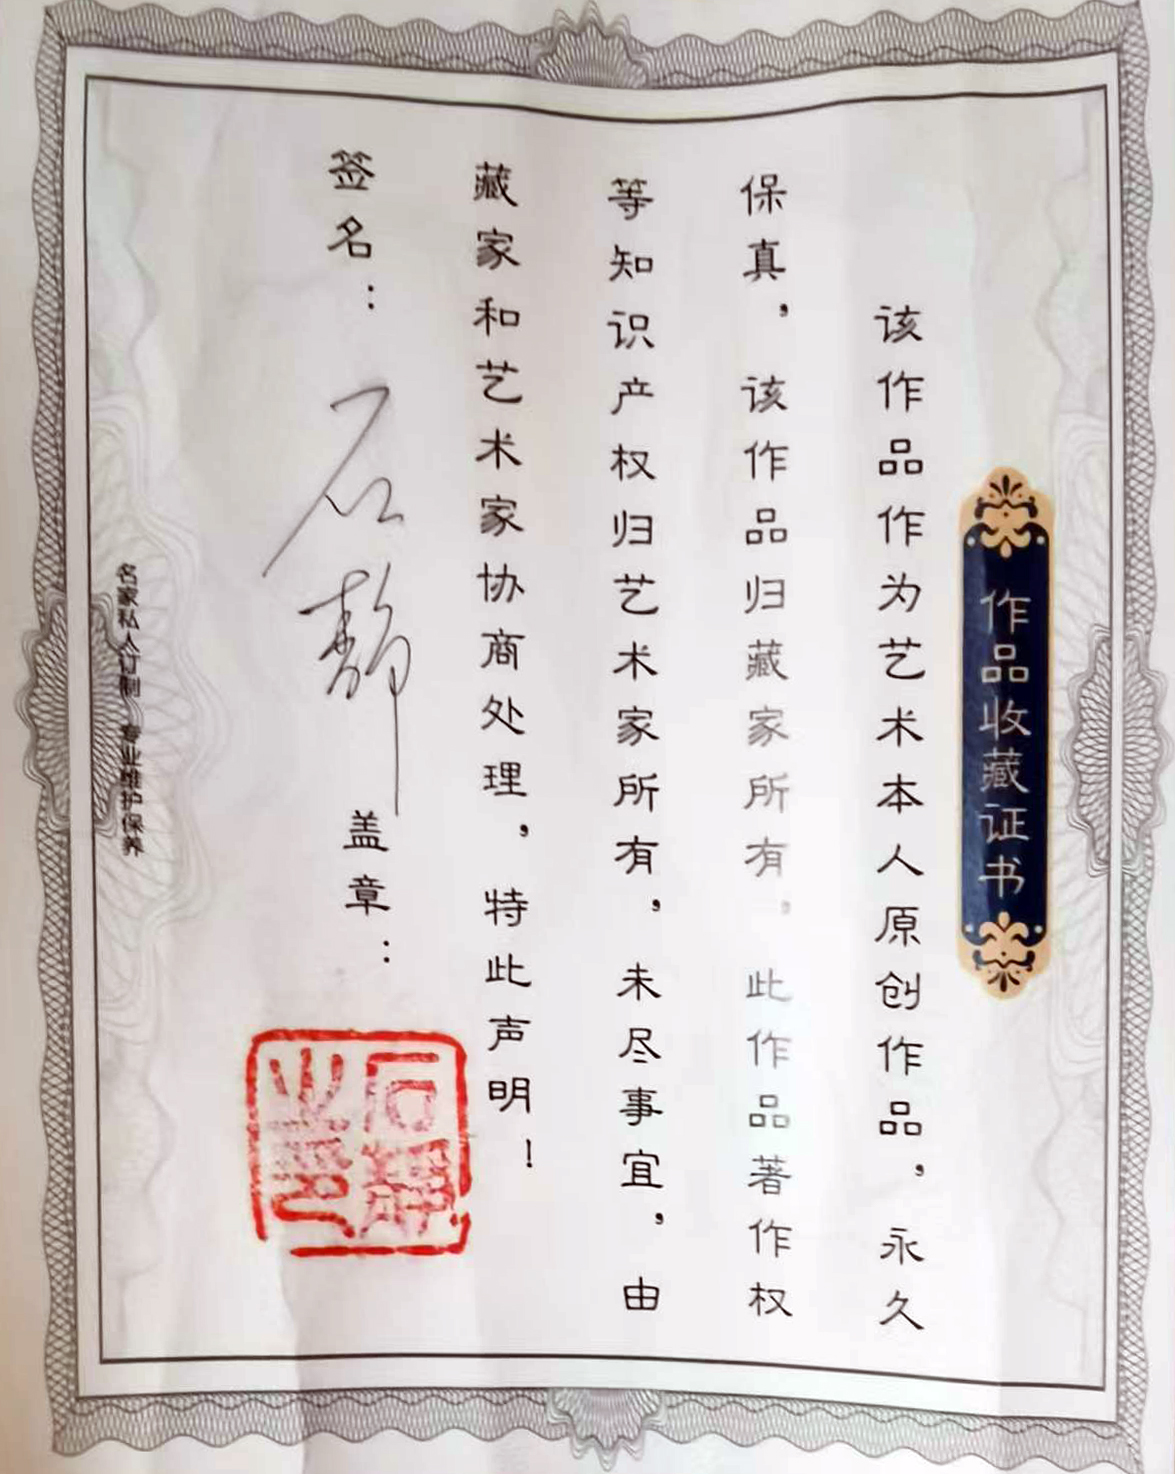 作品收藏证书
该作品作为艺术本人原创作品，永久
保真，该作品归藏家所有，此作品著作权
等知识产权归艺术家所有，未尽事宜，由
藏家和艺术家协商处理，特此声明！
签名：石静 盖章：
石静之印
名家私人订制 专业维护保养